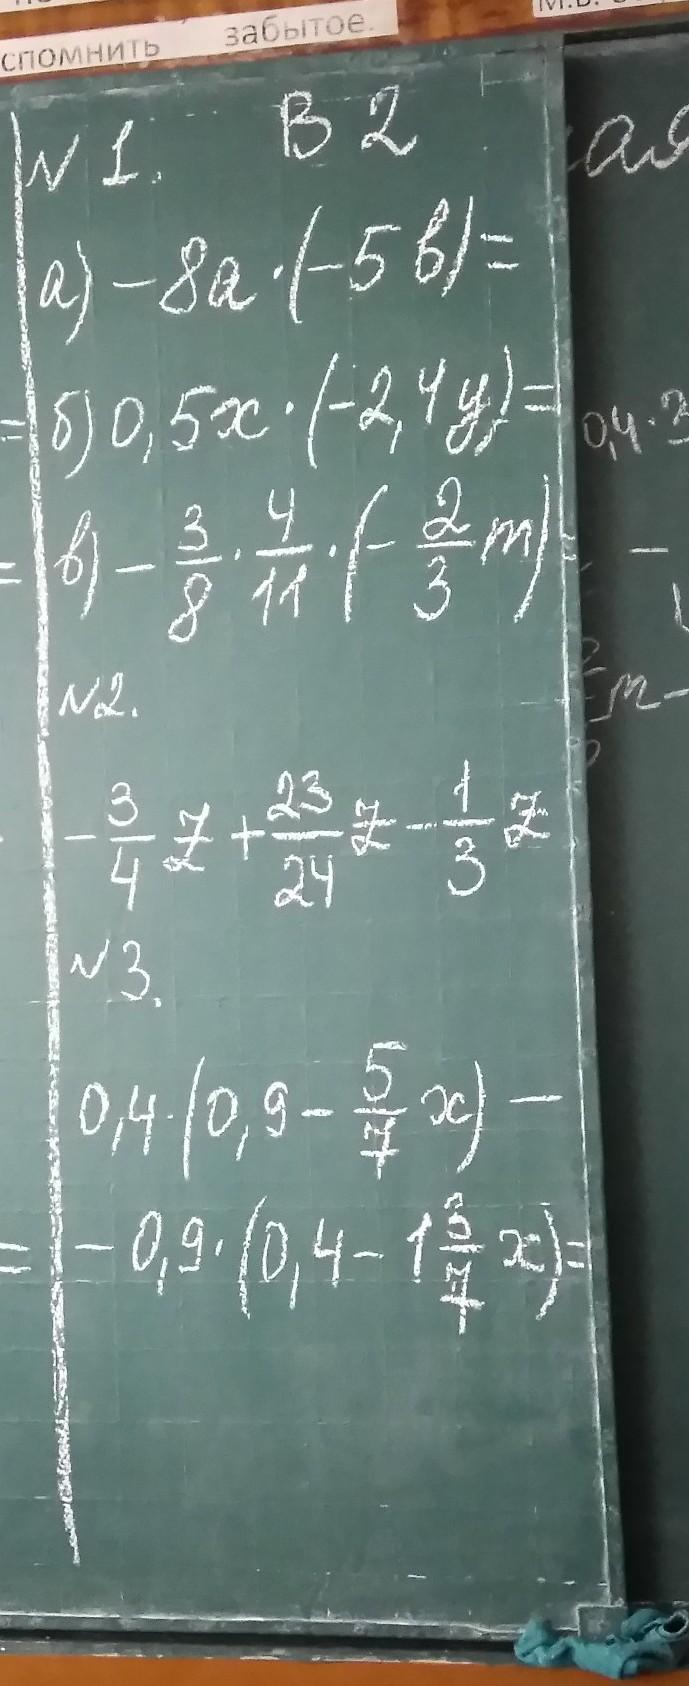 спомнить забытое.
N 1. В 2
а) -8a·(-5b)=
б) 0,5x·(-2,4y)=
в) -3/8·4/11·(-2/3m)=
N2.
-3/4z+23/24z-1/3z
N3.
0,4·(0,9-5/7x)-
-0,9·(0,4-1 3/7x)=